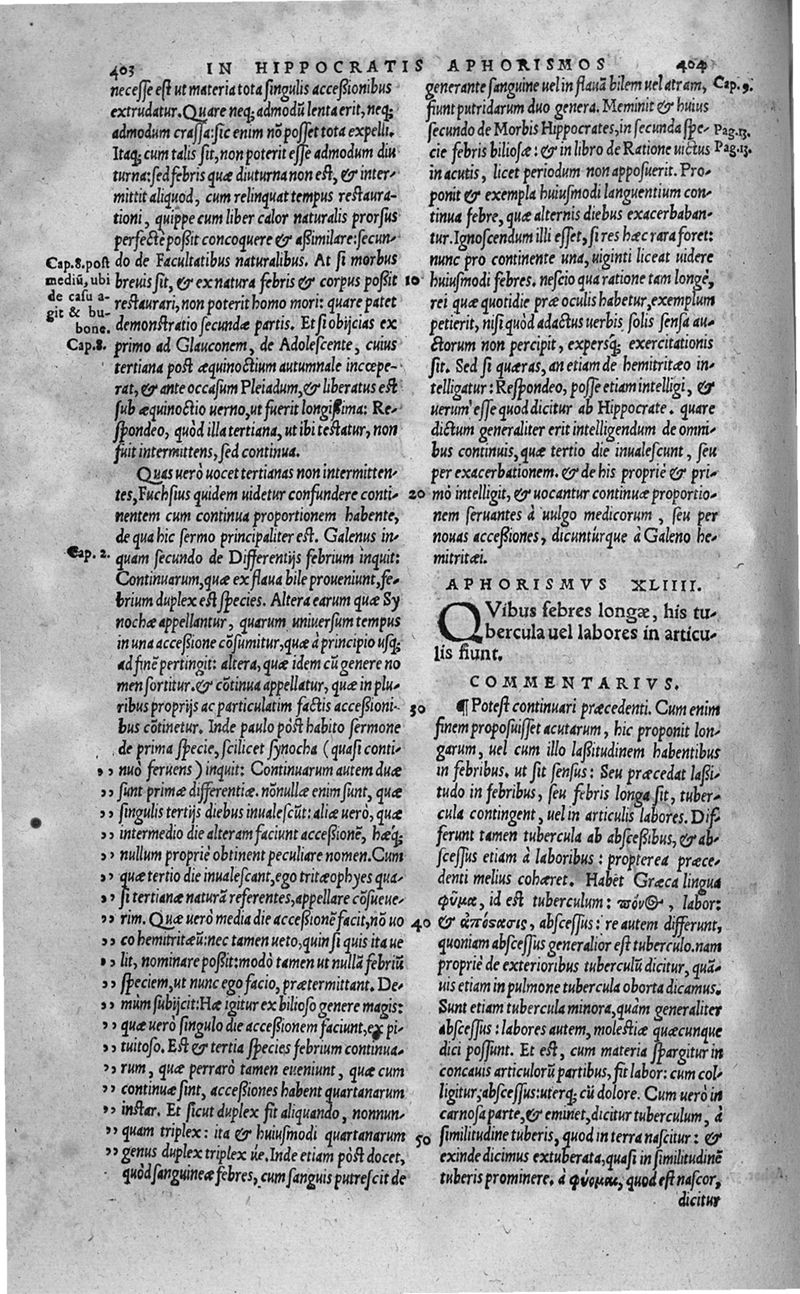 403 IN HIPPOCRATIS APHORISMOS 404
necesse est ut materia tota singulis accessionibus
extrudatur. Quare neq; admodũ lenta erit, neq;
admodum crassa: sic enim nõ posset tota expelli.
Itaq; cum talis sit, non poterit esse admodum diu
turna: sed febris quæ diuturna non est, & inter-
mittit aliquod, cum relinquat tempus restaura-
tioni, quippe cum liber calor naturalis prorsus
perfectè possit concoquere & assimilare: secun-
Cap. 8. post
mediũ, ubi
de casu a-
git & bu-
bone.
Cap. 8.
do de Facultatibus naturalibus. At si morbus
breuis sit, & ex natura febris & corpus possit
restaurari, non poterit homo mori: quare patet
demonstratio secundæ partis. Et si obijcias ex
primo ad Glauconem, de Adolescente, cuius
tertiana post æquinoctium autumnale incœpe-
rat, & ante occasum Pleiadum, & liberatus est
sub æquinoctio uerno, ut fuerit longissima: Re-
spondeo, quòd illa tertiana, ut ibi testatur, non
fuit intermittens, sed continua.
Quas uerò uocet tertianas non intermitten-
tes, Fuchsius quidem uidetur confundere conti-
nentem cum continua proportionem habente,
de qua hic sermo principaliter est. Galenus in-
Cap. 2.
quam secundo de Differentijs febrium inquit:
Continuarum, quæ ex flaua bile proueniunt, fe-
brium duplex est species. Altera earum quæ Sy
nochæ appellantur, quarum uniuersum tempus
in una accessione cõsumitur, quæ à principio usq;
ad finẽ pertingit: altera, quæ idem cũ genere no
men sortitur. & cõtinua appellatur, quæ in plu-
ribus proprijs ac particulatim factis accessioni-
bus cõtinetur. Inde paulo pòst habito sermone
de prima specie, scilicet synocha (quasi conti-
nuò feruens) inquit: Continuarum autem duæ
,, sunt primæ differentiæ. nõnullæ enim sunt, quæ
,, singulis tertijs diebus inualescũt: aliæ uerò, quæ
,, intermedio die alteram faciunt accessionẽ, hæq;
,, nullum propriè obtinent peculiare nomen. Cum
,, quæ tertio die inualescant, ego tritæophyes qua-
,, si tertianæ naturã referentes, appellare cõsueue-
,, rim. Quæ uerò media die accessionẽ facit, nõ uo
,, co hemitritæũ: nec tamen ueto, quin si quis ita ue
,, lit, nominare possit: modò tamen ut nullã febriũ
,, speciem, ut nunc ego facio, prætermittant. De-
,, mùm subijcit: Hæ igitur ex bilioso genere magis:
,, quæ uerò singulo die accessionem faciunt, ex pi-
,, tuitoso. Est & tertia species febrium continua-
,, rum, quæ perrarò tamen eueniunt, quæ cum
,, continuæ sint, accessiones habent quartanarum
,, instar. Et sicut duplex fit aliquando, nonnun-
,, quam triplex: ita & huiusmodi quartanarum
,, genus duplex triplex ue. Inde etiam pòst docet,
quòd sanguineæ febres, cum sanguis putrescit de
generante sanguine uel in flauã bilem uel atram,
Cap. 9.
fiunt putridarum duo genera. Meminit & huius
secundo de Morbis Hippocrates, in secunda spe-
Pag. 13.
cie febris biliosæ: & in libro de Ratione uictus
Pag. 13.
in acutis, licet periodum non apposuerit. Pro-
ponit & exempla huiusmodi languentium con-
tinua febre, quæ alternis diebus exacerbaban-
tur. Ignoscendum illi esset, si res hæc rara foret:
nunc pro continente una, uiginti liceat uidere
10 huiusmodi febres. nescio qua ratione tam longè,
rei quæ quotidie præ oculis habetur, exemplum
petierit, nisi quòd adactus uerbis solis sensa au-
ctorum non percipit, expersq; exercitationis
sit. Sed si quæras, an etiam de hemitritæo in-
telligatur: Respondeo, posse etiam intelligi, &
uerum esse quod dicitur ab Hippocrate. quare
dictum generaliter erit intelligendum de omni-
bus continuis, quæ tertio die inualescunt, seu
per exacerbationem. & de his propriè & pri-
20 mò intelligit, & uocantur continuæ proportio-
nem seruantes à uulgo medicorum, seu per
nouas accessiones, dicunturque à Galeno he-
mitritæi.
APHORISMVS XLIIII.
QVibus febres longæ, his tu-
bercula uel labores in articu-
lis fiunt.
COMMENTARIVS.
30 ¶ Potest continuari præcedenti. Cum enim
finem proposuisset acutarum, hic proponit lon-
garum, uel cum illo lassitudinem habentibus
in febribus. ut sit sensus: Seu præcedat lassi-
tudo in febribus, seu febris longa sit, tuber-
cula contingent, uel in articulis labores. Dif-
ferunt tamen tubercula ab abscessibus, & ab-
scessus etiam à laboribus: propterea præce-
denti melius cohæret. Habet Græca lingua
φῦμα, id est tuberculum: πόνος, labor:
40 & ἀπόστασις, abscessus: re autem differunt,
quoniam abscessus generalior est tuberculo. nam
propriè de exterioribus tuberculũ dicitur, quã-
uis etiam in pulmone tubercula oborta dicamus.
Sunt etiam tubercula minora, quàm generaliter
abscessus: labores autem, molestiæ quæcunque
dici possunt. Et est, cum materia spargitur in
concauis articulorũ partibus, fit labor: cum col-
ligitur, abscessus: uterq; cũ dolore. Cum uerò in
carnosa parte, & eminet, dicitur tuberculum, à
50 similitudine tuberis, quod in terra nascitur: &
exinde dicimus extuberata, quasi in similitudinẽ
tuberis prominere. à φύομαι, quod est nascor,
dicitur